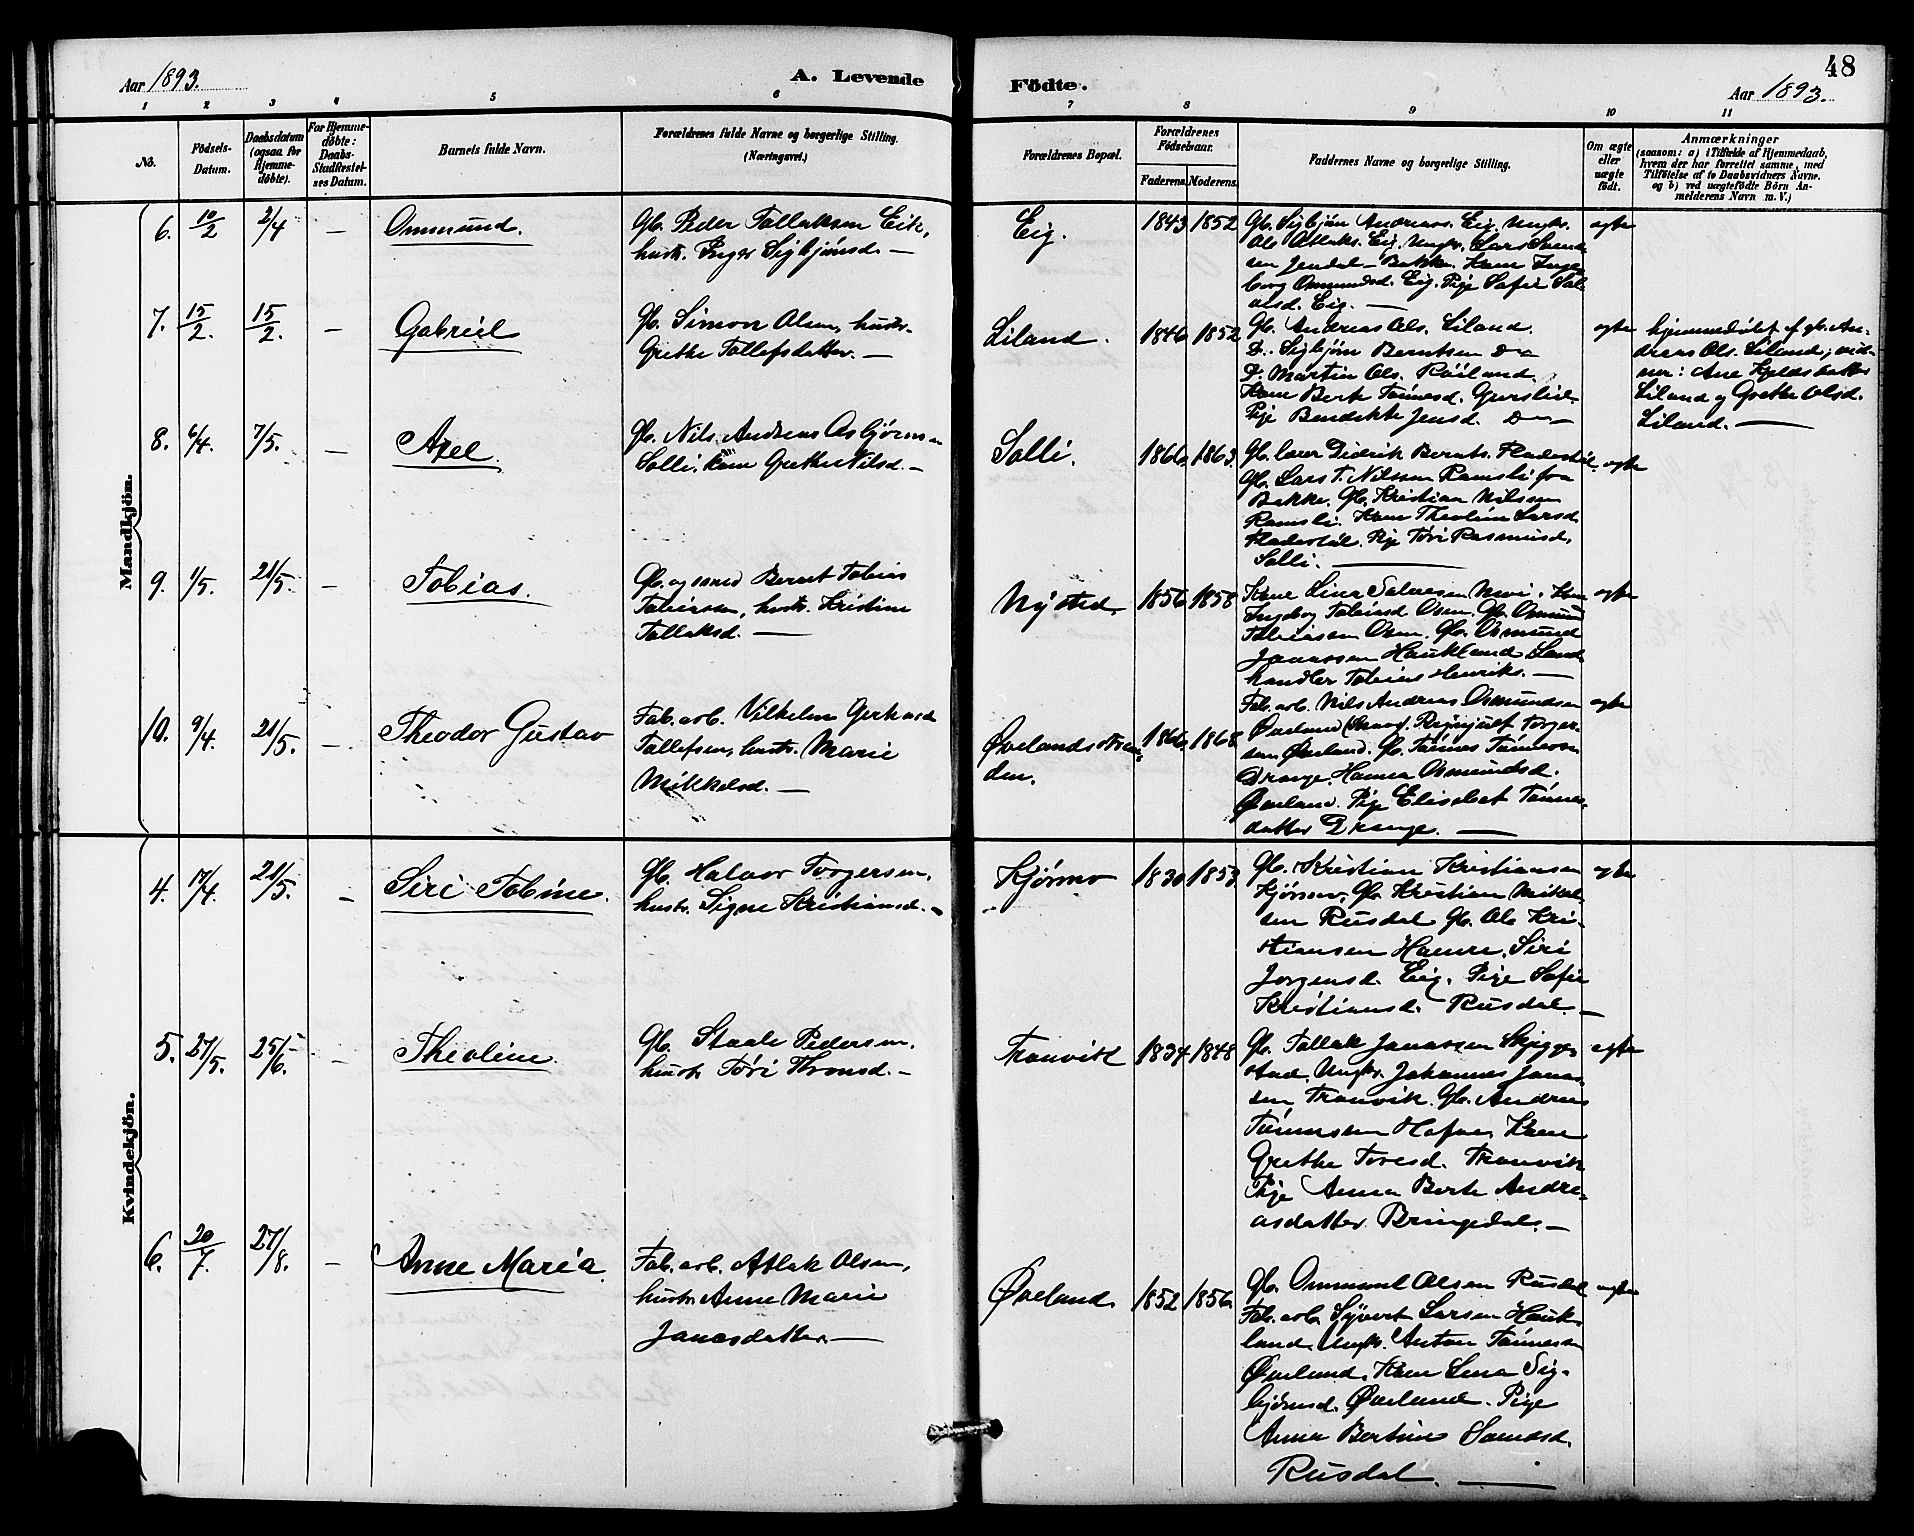 Aar 1893.
A. Levende
Födte.
48
Aar 1893.
1 2 3 4 5 6 7 8 9 10 11
No.
Födsels-
Datum.
Daabsdatum
(ogsaa for
Hjemme-
døbte).
For Hjemme-
døbte:
Daabs-
Stadfæstel-
ses Datum.
Barnets fulde Navn.
Forældrenes fulde Navne og borgerlige Stilling.
(Næringsvei.)
Forældrenes Bopæl.
Forældrenes
Födselsaar.
Faderens. Moderens.
Faddernes Navne og borgerlige Stilling.
Om ægte
eller
uægte
født.
Anmærkninger
(saasom: a) i Tilfælde af Hjemmedaab,
hvem der har forrettet samme, med
Tilföielse af to Daabsvidners Navne.
og b) ved uægtefödte Börn An-
melderens Navn m. V.)
Mandkjön.
6. 10/2 2/4 —
Ommund.
Gb. Peder Tollaksen Eik,
hustr. Inger Sigbjørnsd. —
Eig.
1843 1852
Gb. Sigbjørn Andreass. Eig. Ungk.
Ols Atlaks. Eig. Ungk. Lars Svend
sen Jendal – Bakke. Kone Inge
borg Ommundsd. Eig. Pige Sofie Sal
Eig. —
ægte
7. 15/2. 15/2. —
Gabriel
Gb. Simon Olsen, hustr.
Grethe Tollefsdatter. —
Liland.
1846 1852
Gb. Andreas Ols. Liland.
D. Sigbjørn Berntsen Do
D. Martin Ols. Röiland.
Kone Berte Tönnesd. Gurslie.
Pige Bendikte Jensd. Do —
ægte
hjemmedøbt af gb. An-
dreas Ols. Liland; vid-
ner: Ane
Liland og Grethe Olsd.
Liland. —
8. 6/4. 7/5. —
Axel.
Gb. Nils Andreas Asbjørnsen
Solli, kone Grethe Nilsd. —
Solli.
1866 1863.
Gb. lærer Didrik Bernts.
Gb. Lars T. Nilssen Ramsli fra
Bakke. Gb. Kristian Nilssen
Ramsli. Kone Theoline Larsd.
Pige Tóri Rasmusd.
Solli. —
ægte
9. 1/5. 21/5. —
Tobias.
Gb. og smed Bernt Tobias
Tobiassen, hustr. Kristine
Tollaksd. —
Nysted.
1856 1858
Kone Lina Salvesen Moi. Kone
Ingeborg Tobiasd Osen. Gb. Osmund
Tobiassen Osen. Gb. Osmund
Janassen Haukland Land
handler Tobias Henriks. —
ægte
10. 9/4. 21/5. —
Theodor Gustav
Fab. arb. Vilhelm Gerhard
Tollefsen, hustr. Marie
Mikkelsd. —
Øvelandsstran-
den.
1866 1868
Fab. arb. Nils Andreas Osmundsen
Øveland Torger-
sen Øveland. Gb. Tönnes Tönnessen
Drange. Hanna Osmundsd.
Øveland. Pige Elisabet Tönnes
datter Drange. —
ægte
Kvindekjön.
4. 17/4. 21/5. —
Siri Tobine.
Gb. Halvor Torgersen,
hustr. Signe Kristiansd. —
Kjørmo
1830 1853
Gb. Kristian Kristiansen
Kjørmo, Gb. Kristian Mikal
sen Rusdal Gb. Ole Kri-
stiansen Hamre, Siri
Jorgensd. Eig. Pige Sofie
Kristiansd. Rusdal. —
ægte
5. 27/5. 25/6. —
Theoline
Gb. Staale Pedersen,
hustr Tóri Thronsd. —
Tronvik
1834 1848
Gb. Tollak Janassen Skjegge
stad. Ungk. Johannes Janas
sen Tronvik. Gb. Andreas
Tönnessen Hafne, Kone
Grethe Toresd. Tronvik
Pige Anna Berte Andre-
asdatter Bringedal. —
ægte
6. 20/7. 27/8. —
Anne Maria
Fab. arb. Atlak Olsen,
hustr. Anne Marie
Janasdatter. —
Øveland.
1852 1856.
Gb. Ommund Olsen Rusdal
Fab. arb. Syvert Larsen Hauk-
land, Ungk. Anton Tönnesen
Øveland. Kone Lena Sig-
bjørnsd. Øveland. Pige
Anna Bertine
Rusdal. —
ægte